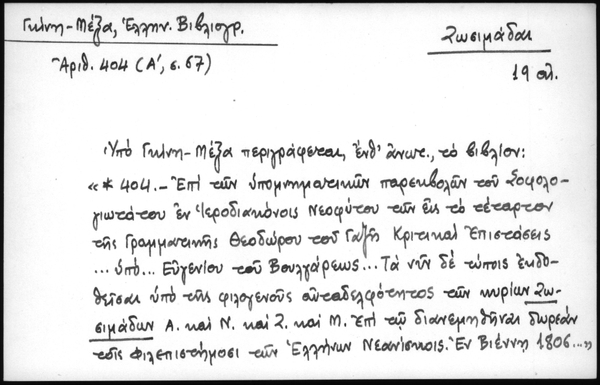 Γκίνη-Μέξα, Ἑλλην. Βιβλιογρ.
Ζωσιμάδαι
Ἀριθ. 404 (Α', σ. 67)
19 αἰ.
Ὑπὸ Γκίνη-Μέξα περιγράφεται, ἔνθ' ἄνωτ., τὸ βιβλίον:
«* 404.- Ἐπὶ τῶν ὑπομνηματικῶν παρεκβολῶν τοῦ Σοφολο-
γιωτάτου ἐν Ἱεροδιακόνοις Νεοφύτου τῶν εἰς τὸ τέταρτον
τῆς Γραμματικῆς Θεοδώρου τοῦ Γαζῆ Κριτικαὶ Ἐπιστάσεις
... ὑπὸ... Εὐγενίου τοῦ Βουλγάρεως... Τὰ νῦν δὲ τύποις ἐκδο-
θεῖσαι ὑπὸ τῆς φιλογενοῦς αὐταδελφότητος τῶν κυρίων Ζω-
σιμάδων Α. καὶ Ν. καὶ Ζ. καὶ Μ. ἐπὶ τῷ διανεμηθῆναι δωρεὰν
τοῖς φιλεπιστήμοσι τῶν Ἑλλήνων Νεανίσκοις. Ἐν Βιέννῃ 1806...»